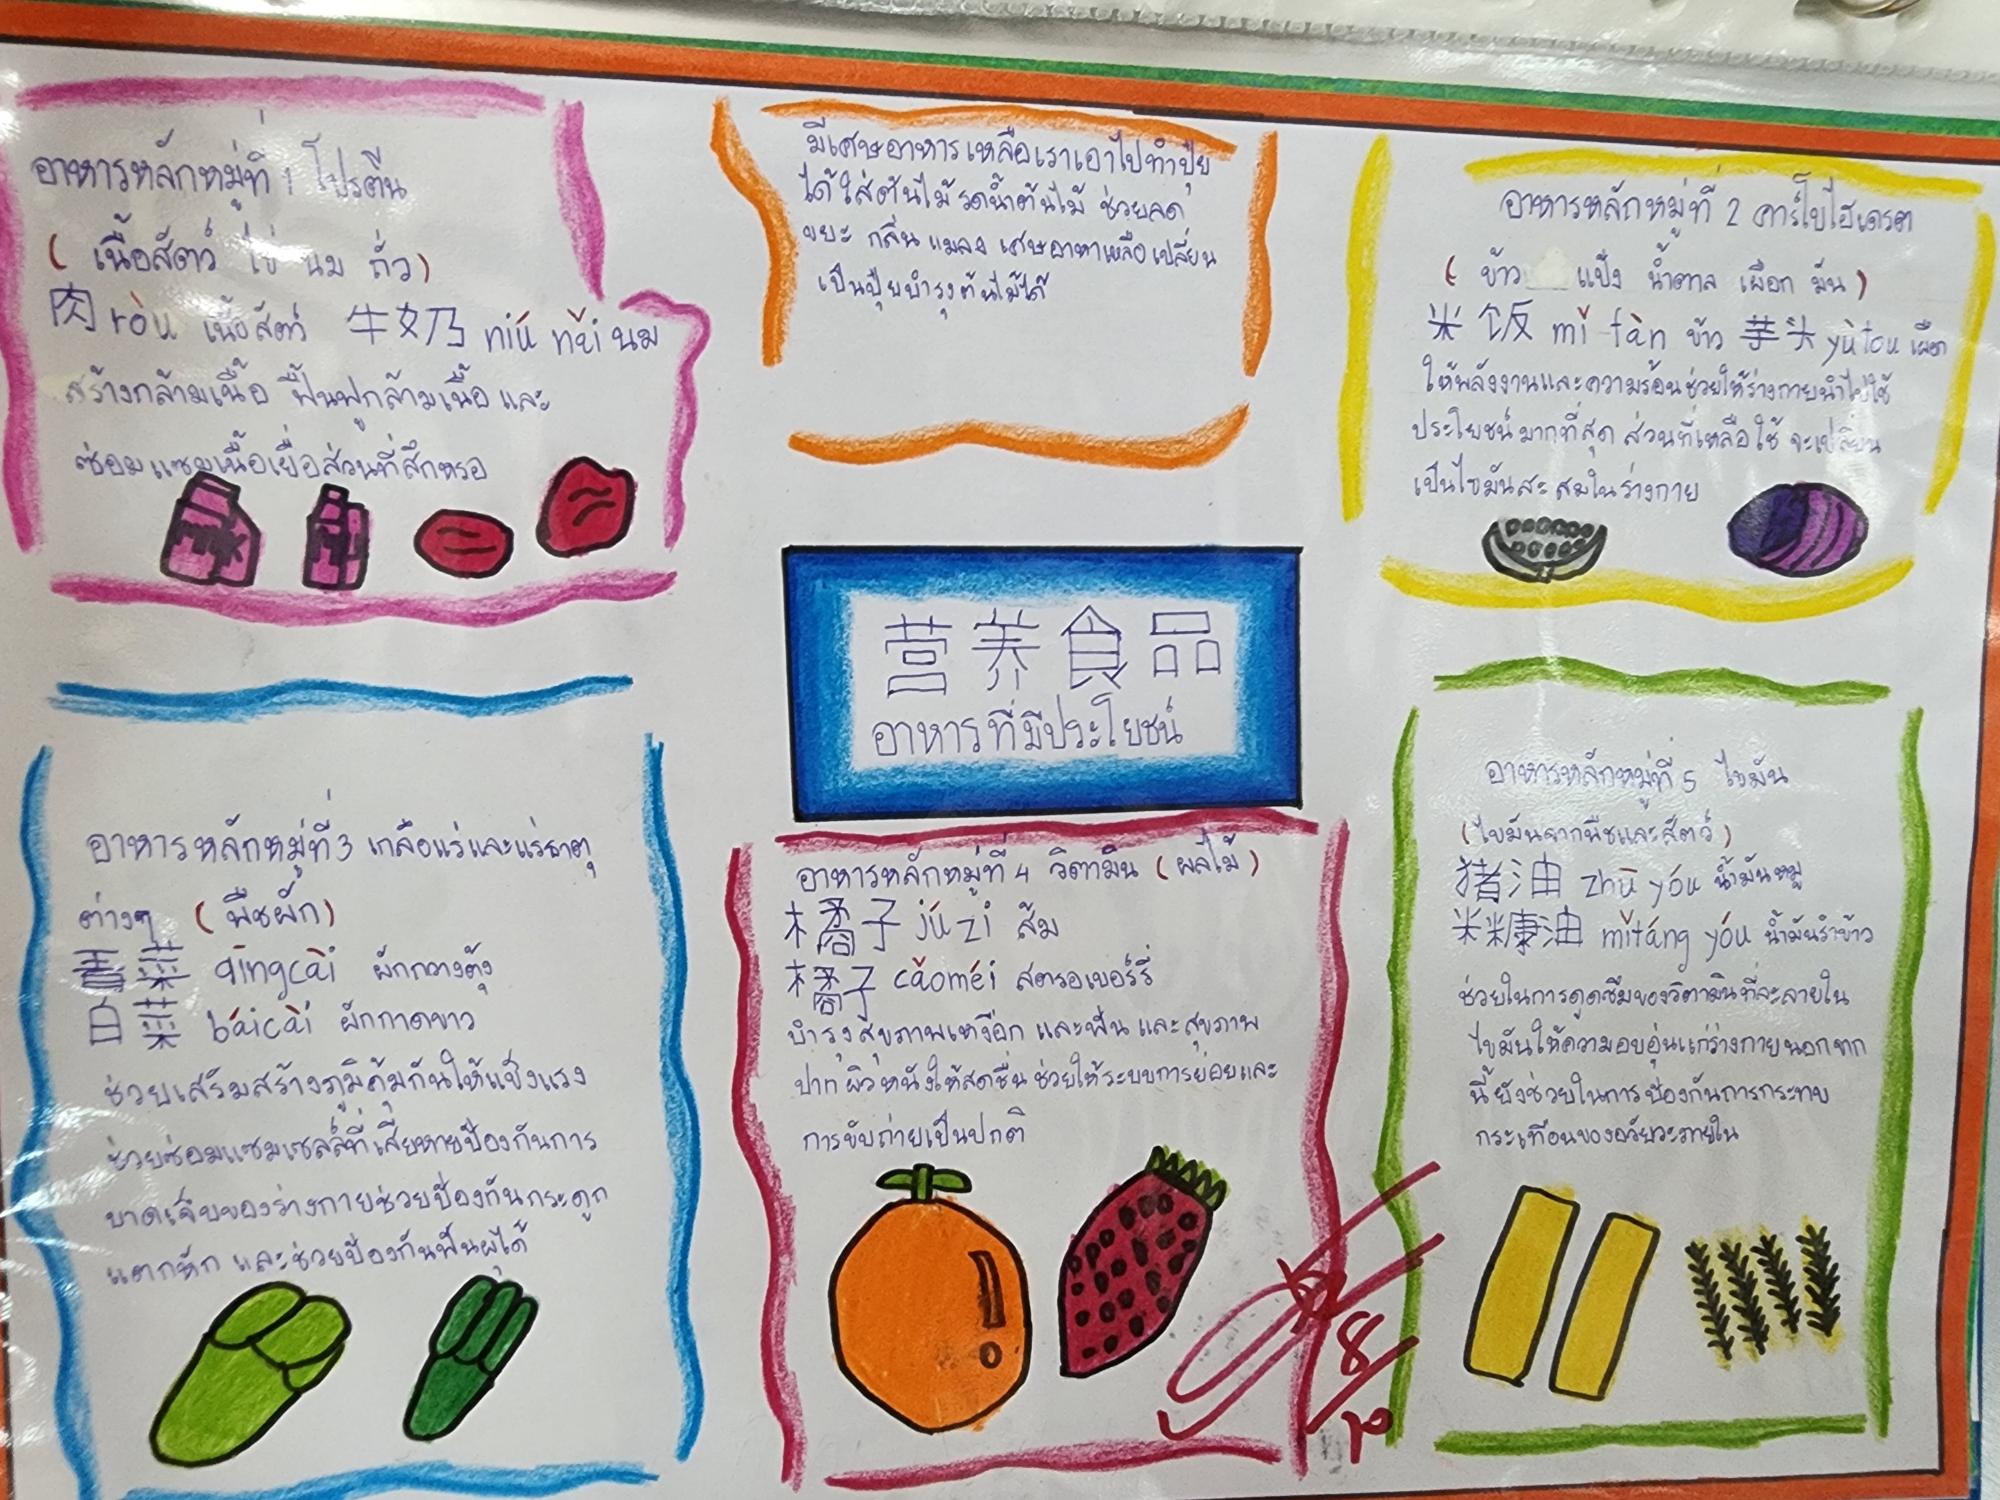 อาหารหลักหมู่ที่ 1 โปรตีน
( เนื้อสัตว์ ไข่ นม ถั่ว )
肉 ròu เนื้อสัตว์ 牛奶 niú nǎi นม
สร้างกล้ามเนื้อ ฟื้นฟูกล้ามเนื้อ และ
ซ่อมแซมเนื้อเยื่อส่วนที่สึกหรอ
มีเศษอาหารเหลือเราเอาไปทำปุ๋ย
ได้ใส่ต้นไม้ รดน้ำต้นไม้ ช่วยลด
ขยะ กลิ่น แมลง เศษอาหาเหลือ เปลี่ยน
เป็นปุ๋ยบำรุงต้นไม้ได้
อาหารหลักหมู่ที่ 2 คาร์โบไฮเดรต
( ข้าว แป้ง น้ำตาล เผือก มัน )
米饭 mǐ fàn ข้าว 芋头 yùtou เผือก
ให้พลังงานและความร้อนช่วยให้ร่างกายนำไปใช้
ประโยชน์มากที่สุด ส่วนที่เหลือใช้ จะเปลี่ยน
เป็นไขมันสะสมในร่างกาย
营养食品
อาหารที่มีประโยชน์
อาหารหลักหมู่ที่ 3 เกลือแร่และแร่ธาตุ
ต่างๆ ( พืชผัก )
青菜 qīngcài ผักกวางตุ้ง
白菜 báicài ผักกาดขาว
ช่วยเสริมสร้างภูมิคุ้มกันให้แข็งแรง
ช่วยซ่อมแซมเซลล์ที่เสียหายป้องกันการ
บาดเจ็บของร่างกายช่วยป้องกันกระดูก
แตกหัก และช่วยป้องกันฟันผุได้
อาหารหลักหมู่ที่ 4 วิตามิน ( ผลไม้ )
橘子 júzi ส้ม
橘子 cǎoméi สตรอเบอร์รี่
บำรุงสุขภาพเหงือก และฟัน และสุขภาพ
ปาก ผิวหนังให้สดชื่น ช่วยให้ระบบการย่อยและ
การขับถ่ายเป็นปกติ
อาหารหลักหมู่ที่ 5 ไขมัน
( ไขมันจากพืชและสัตว์ )
猪油 zhū yóu น้ำมันหมู
米糠油 mǐtáng yóu น้ำมันรำข้าว
ช่วยในการดูดซึมของวิตามินที่ละลายใน
ไขมันให้ความอบอุ่นแก่ร่างกายนอกจาก
นี้ ยังช่วยในการป้องกันการกระทบ
กระเทือนของอวัยวะภายใน
8/10